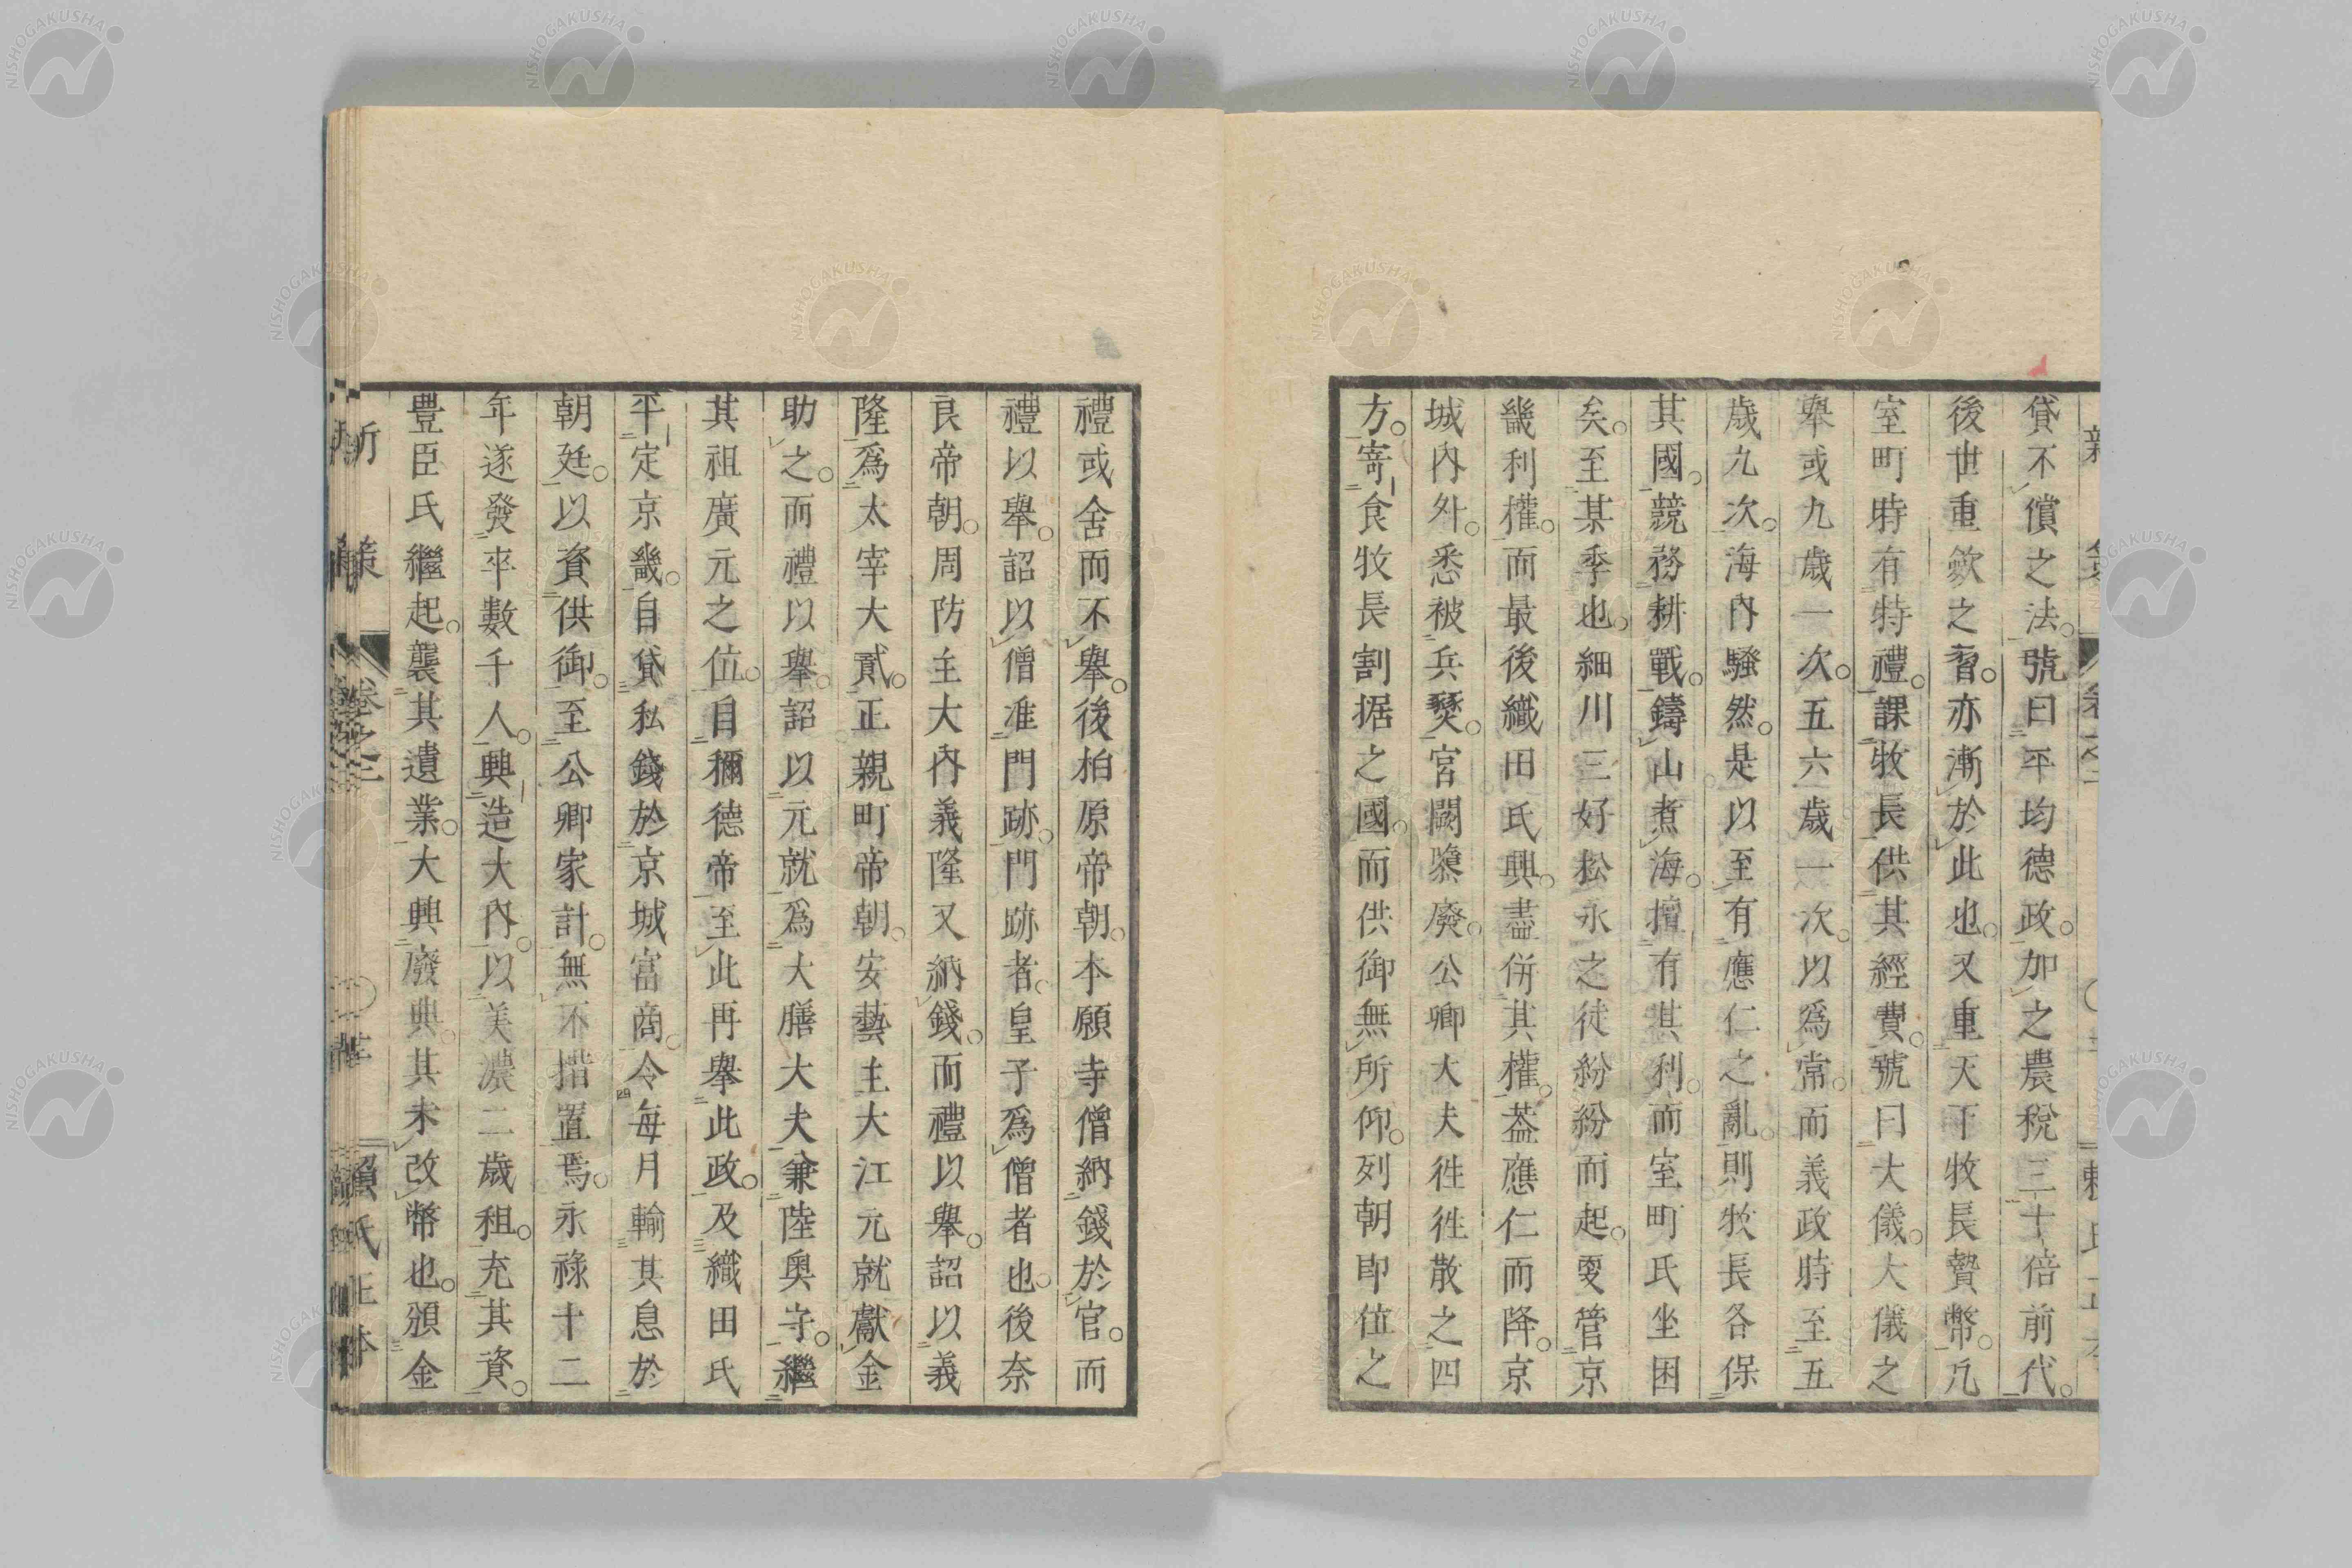 貸不償之法。號曰平均德政。加之農稅三十倍前代。
後世重歛之習。亦漸於此也。又重天下牧長贄幣。凢
室町時有特禮。課牧長供其經費。號曰大儀。大儀之
舉或九歳一次。五六歳一次。以爲常。而義政時至五
歳九次。海內騷然。是以至有應仁之亂。則牧長各保
其國。競務耕戰。鑄山煮海。擅有其利。而室町氏坐困
矣。至某季也。細川三好松永之徒紛紛而起。更管京
畿利權。而最後織田氏興。盡併其權。葢應仁而降。京
城內外。悉被兵燹。宮闕隳廢。公卿大夫徃徃散之四
方。寄食牧長割据之國。而供御無所仰。列朝即位之
禮或舍而不舉。後柏原帝朝。本願寺僧納錢於官。而
禮以舉。詔以僧准門跡。門跡者。皇子爲僧者也。後奈
良帝朝。周防主大內義隆又納錢。而禮以舉。詔以義
隆爲太宰大貳。正親町帝朝。安藝主大江元就獻金
助之。而禮以舉。詔以元就爲大膳大夫兼陸奧守。繼
其祖廣元之位。自稱德帝至此再舉此政。及織田氏
平定京畿。自貸私錢於京城富商。令每月輸其息於
朝廷。以資供御。至公卿家計。無不措置焉。永祿十二
年遂發卒數千人。興造大內。以美濃二歳租。充其資。
豊臣氏繼起。襲其遺業。大興廢典。其未改幣也。頒金
新策 卷之三 賴氏正本